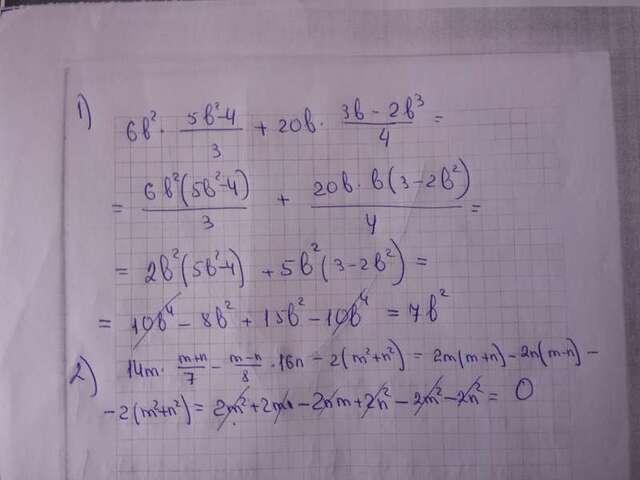 1) 6b² · (5b²-4)/3 + 20b · (3b - 2b³)/4 =
= 6b²(5b²-4)/3 + 20b · b(3-2b²)/4 =
= 2b²(5b²-4) + 5b²(3-2b²) =
= 10b⁴ - 8b² + 15b² - 10b⁴ = 7b²
2) 14m · (m+n)/7 - (m-n)/8 · 16n - 2(m²+n²) = 2m(m+n) - 2n(m-n) -
- 2(m²+n²) = 2m² + 2mn - 2nm + 2n² - 2m² - 2n² = 0